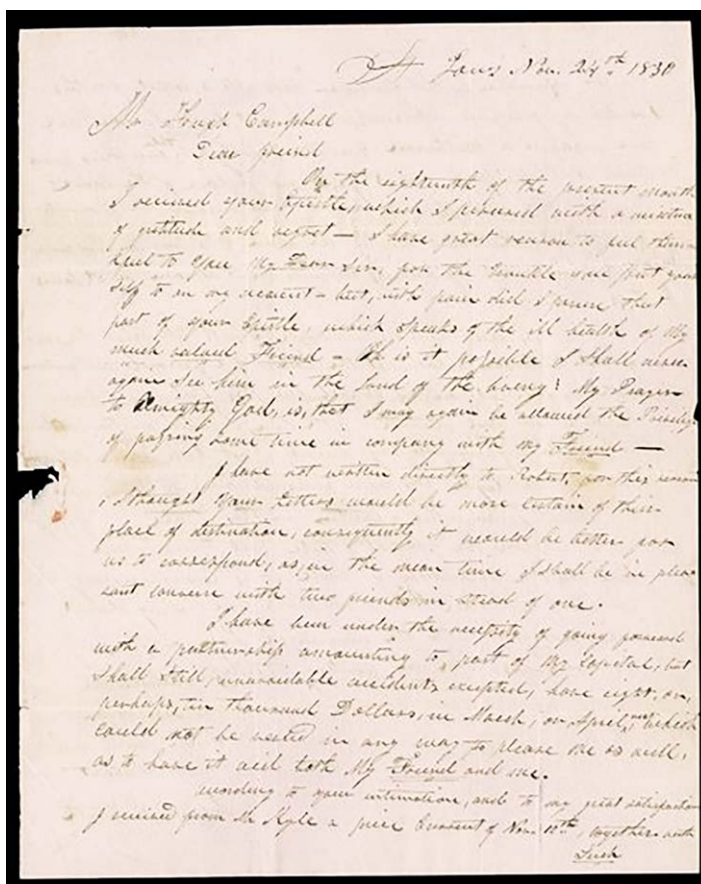 St Louis Nov. 24th 1830
Mr Hugh Campbell
Dear freind
On the eighteenth of the present month
I received your Epistle, which I perused with a mixture
of gratitude and regret — I have great reason to feel thank
full to you My Dear Sir, for the trouble you put your
self to on my account – but, with pain did I peruse that
part of your Epistle, which speaks of the ill health of My
much valued Friend – Oh is it possible I shall never
again See him in the land of the liveing! My Prayer
to Almighty God, is, that I may again be allowed the Privelige
of passing some time in company with my Friend —
I have not written directly to Robert, for this reason
, I thought your Letters would be more certain of their
place of destination, consequently it would be better for
us to correspond, as, in the mean time I shall be in plea
sant converse with two friends in stead of one.
I have been under the necessity of going forward
with a partnership amounting to, part of My Capital, but
Shall Still, unavoidable accidents excepted, have eight, or,
perhaps, ten thousand Dollars, in March, or, April, which
Could not be vested in any way to please me as well,
as to have it aid both My Friend and me.
according to your intimation, and to my great satisfaction
I received from Mr Kyle a price Current of Nov. 10th, together with
Such